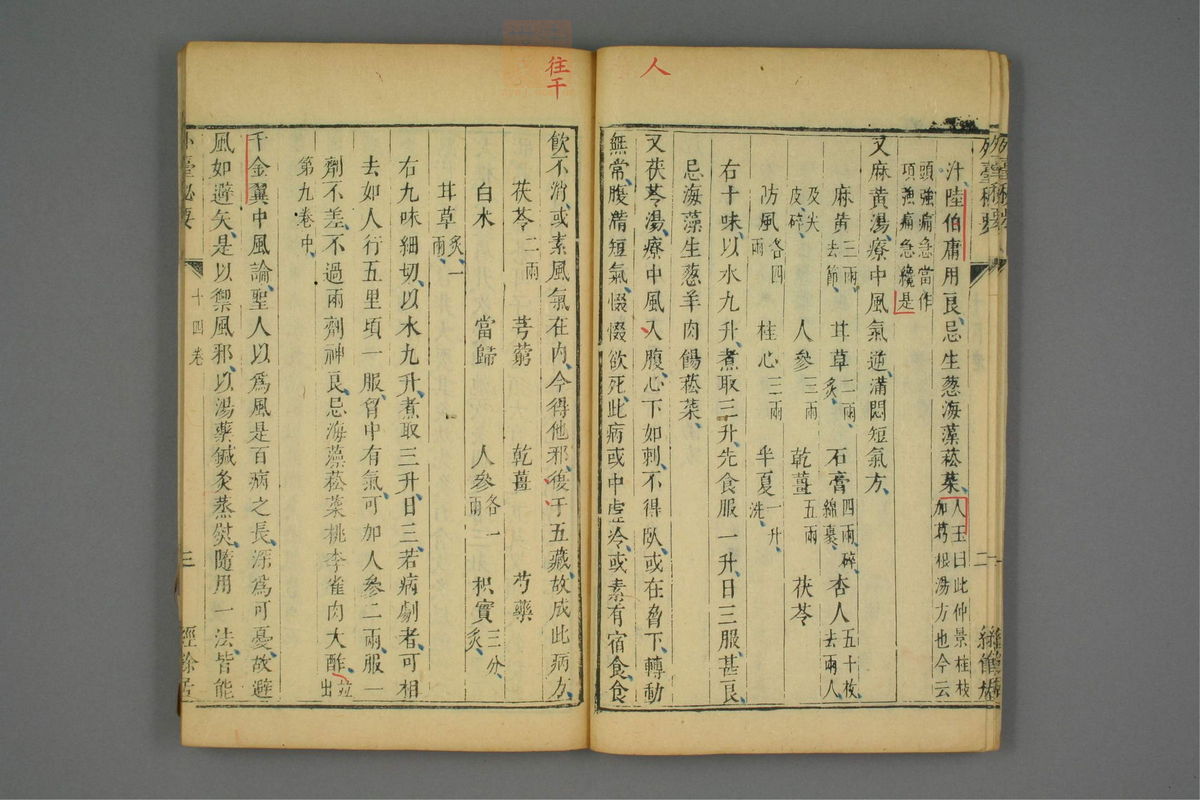 人
汁、陸伯庸用良、忌生葱海藻菘菜、人玉曰此仲景桂枝
加葛根湯方也今云
頭強痛急當作
項強痛急纔是
又麻黃湯、療中風氣逆滿悶短氣方、
麻黃三兩去節、 甘草二兩炙、 石膏四兩碎綿裹、 杏人五十枚去兩人
及尖皮碎、 人參三兩 乾薑五兩 茯苓
防風各四兩 桂心三兩 半夏一升洗、
右十味、以水九升、煮取三升、先食服一升、日三服、甚良、
忌海藻生葱羊肉餳菘菜、
又茯苓湯、療中風入腹、心下如刺、不得臥、或在脅下、轉動
無常、腹滿短氣、惙惙欲死、此病或中虛冷、或素有宿食、食
往干
飲不消、或素風氣在内、今得他邪、後于五藏、故成此病方、
茯苓二兩 芎藭 乾薑 芍藥
白朮 當歸 人參各一兩 枳實三分炙、
甘草炙一兩、
右九味細切、以水九升、煮取三升、日三、若病劇者、可相
去如人行五里頃一服、胷中有氣、可加人參二兩、服一
劑不差、不過兩劑神良、忌海藻菘菜桃李雀肉大酢、並出
第九卷中、
千金翼中風論、聖人以爲風是百病之長、深爲可憂、故避
風如避矢、是以禦風邪、以湯藥鍼灸蒸熨、隨用一法、皆能
外臺秘要 十四卷 三 經餘居